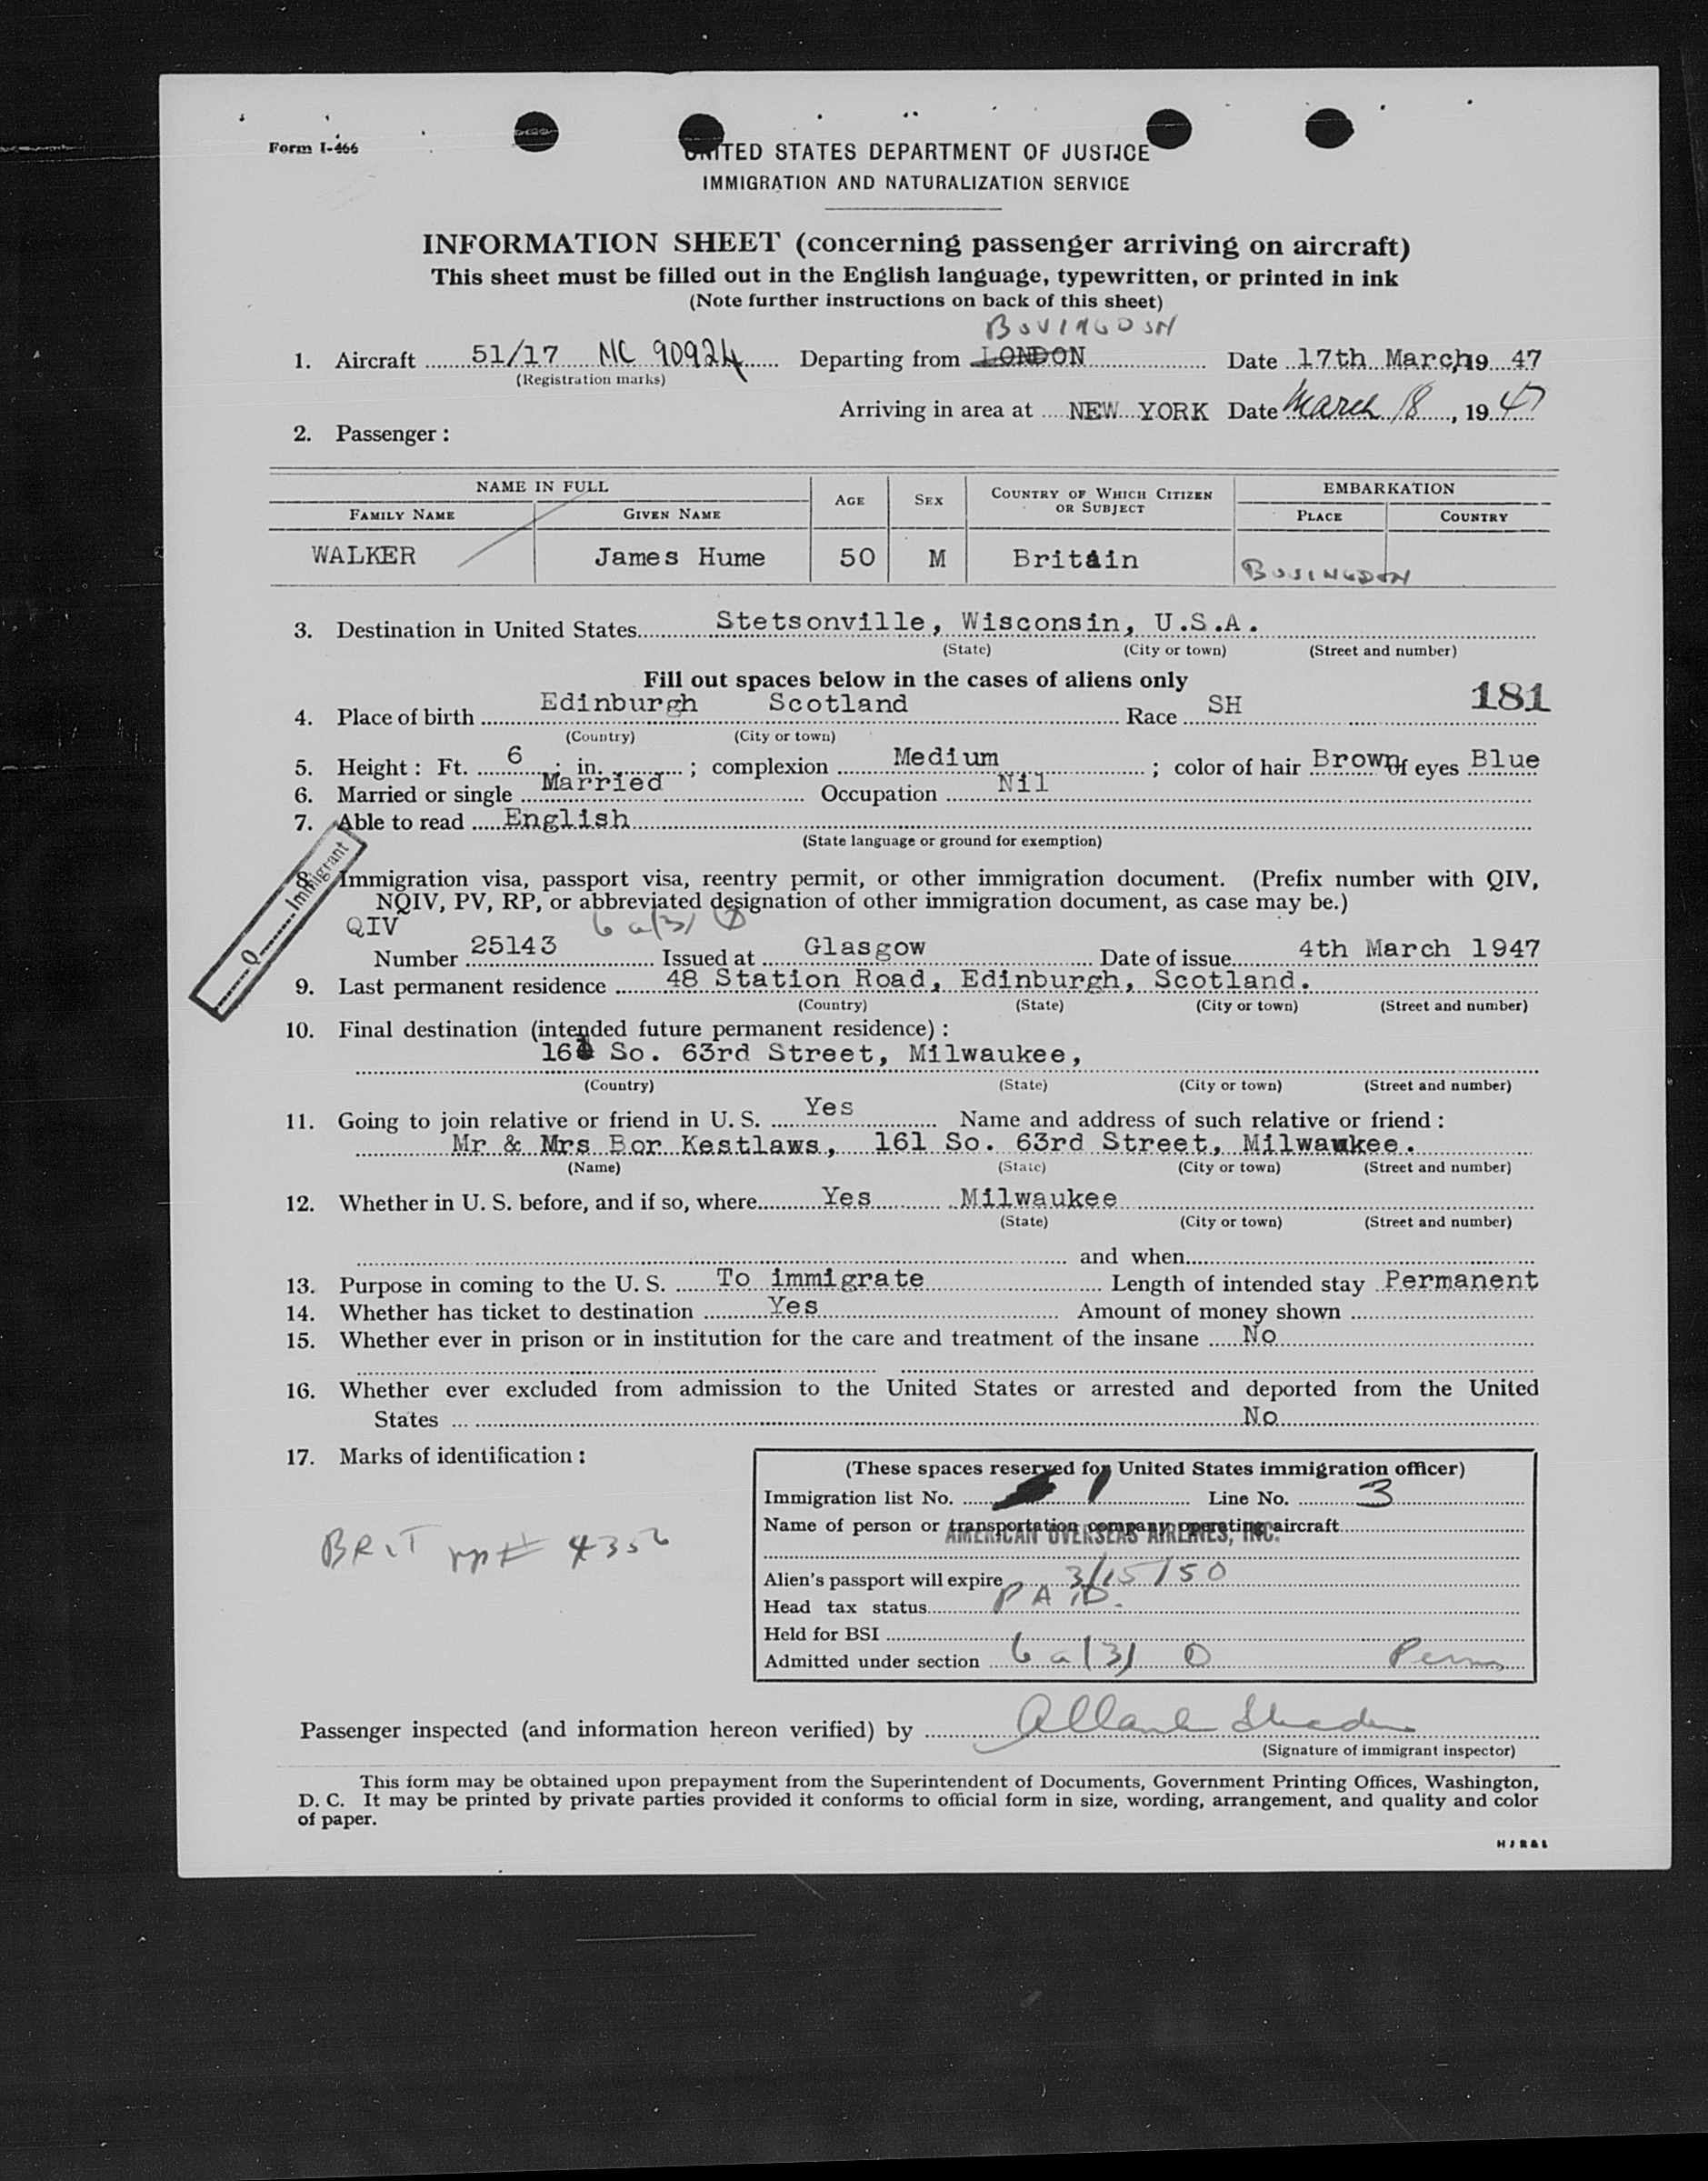 Form I-466
UNITED STATES DEPARTMENT OF JUSTICE
IMMIGRATION AND NATURALIZATION SERVICE
INFORMATION SHEET (concerning passenger arriving on aircraft)
This sheet must be filled out in the English language, typewritten, or printed in ink
(Note further instructions on back of this sheet)
BOVINGDON
1. Aircraft 51/17 NC 90924 Departing from LONDON Date 17th March, 19 47
(Registration marks)
Arriving in area at NEW YORK Date March 18, 19 47
2. Passenger:
NAME IN FULL AGE SEX COUNTRY OF WHICH CITIZEN OR SUBJECT EMBARKATION
FAMILY NAME GIVEN NAME PLACE COUNTRY
WALKER James Hume 50 M Britain BOVINGDON
3. Destination in United States Stetsonville, Wisconsin, U.S.A.
(State) (City or town) (Street and number)
Fill out spaces below in the cases of aliens only
181
4. Place of birth Edinburgh Scotland Race SH
(Country) (City or town)
5. Height: Ft. 6 ; in. ; complexion Medium ; color of hair Brown of eyes Blue
6. Married or single Married Occupation Nil
7. Able to read English
(State language or ground for exemption)
Q Immigrant
8. Immigration visa, passport visa, reentry permit, or other immigration document. (Prefix number with QIV,
NQIV, PV, RP, or abbreviated designation of other immigration document, as case may be.)
QIV 6 a(3)
Number 25143 Issued at Glasgow Date of issue 4th March 1947
9. Last permanent residence 48 Station Road, Edinburgh, Scotland.
(Country) (State) (City or town) (Street and number)
10. Final destination (intended future permanent residence):
161 So. 63rd Street, Milwaukee,
(Country) (State) (City or town) (Street and number)
11. Going to join relative or friend in U. S. Yes Name and address of such relative or friend:
Mr & Mrs Bor Kestlaws, 161 So. 63rd Street, Milwaukee.
(Name) (State) (City or town) (Street and number)
12. Whether in U. S. before, and if so, where Yes Milwaukee
(State) (City or town) (Street and number)
and when
13. Purpose in coming to the U. S. To immigrate Length of intended stay Permanent
14. Whether has ticket to destination Yes Amount of money shown
15. Whether ever in prison or in institution for the care and treatment of the insane No
16. Whether ever excluded from admission to the United States or arrested and deported from the United
States No
17. Marks of identification:
BRIT pp# 4356
(These spaces reserved for United States immigration officer)
Immigration list No. 1 Line No. 3
Name of person or transportation company operating aircraft
AMERICAN OVERSEAS AIRLINES, INC.
Alien's passport will expire 3/15/50
Head tax status PAID.
Held for BSI
Admitted under section 6 a(3) Perm
Passenger inspected (and information hereon verified) by
(Signature of immigrant inspector)
This form may be obtained upon prepayment from the Superintendent of Documents, Government Printing Offices, Washington,
D. C. It may be printed by private parties provided it conforms to official form in size, wording, arrangement, and quality and color
of paper.